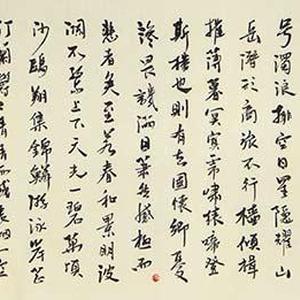 号濁浪排空日星隱耀山
岳潛形商旅不行檣傾楫
摧薄暮冥冥虎嘯猿啼登
斯樓也則有去國懷鄉憂
讒畏譏滿目蕭然感極而
悲者矣至若春和景明波
瀾不驚上下天光一碧萬頃
沙鷗翔集錦鱗游泳岸芷
汀蘭鬱鬱青青而或長煙一空